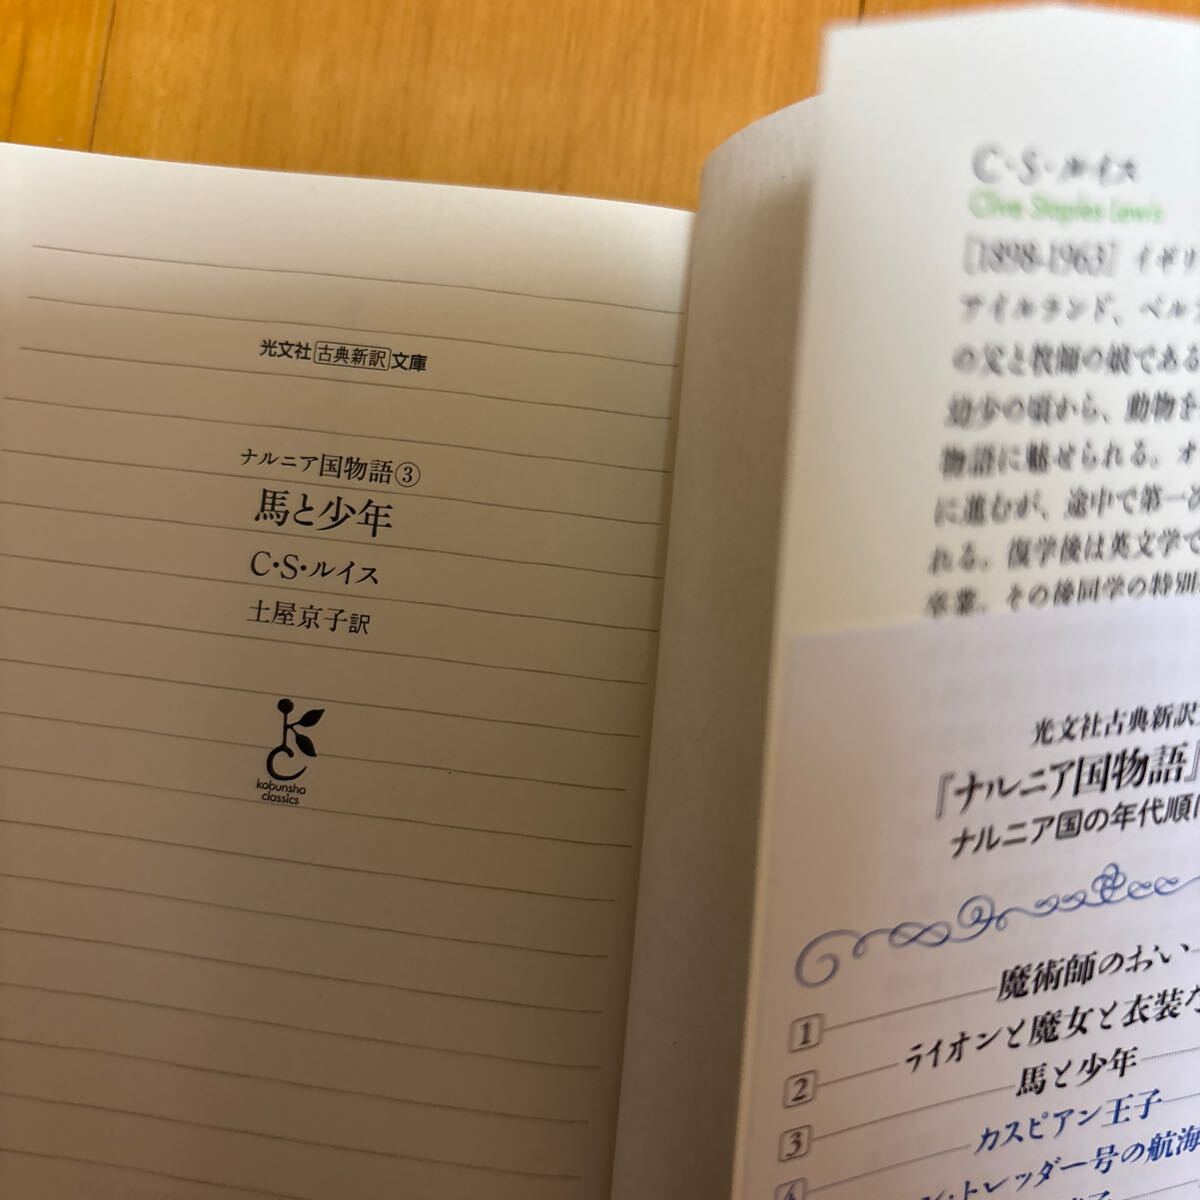 光文社古典新訳文庫
ナルニア国物語③
馬と少年
C・S・ルイス
土屋京子訳
kobunsha
classics
C・S・ルイス
Clive Staples Lewis
[1898-1963] イギリ
アイルランド、ベルフ
の父と牧師の娘である
幼少の頃から、動物を
物語に魅せられる。オ
に進むが、途中で第一
れる。復学後は英文学で
卒業。その後同学の特別
光文社古典新訳
『ナルニア国物語』
ナルニア国の年代順
魔術師のおい
1
ライオンと魔女と衣装
2
馬と少年
3
カスピアン王子
4
トレッダー号の航海